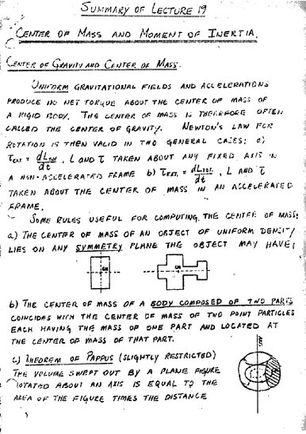 SUMMARY OF LECTURE 19
CENTER OF MASS AND MOMENT OF INERTIA.
CENTER OF GRAVITY AND CENTER OF MASS.
UNIFORM GRAVITATIONAL FIELDS AND ACCELERATIONS
PRODUCE NO NET TORQUE ABOUT THE CENTER OF MASS OF
A RIGID BODY. THE CENTER OF MASS IS THEREFORE OFTEN
CALLED THE CENTER OF GRAVITY. NEWTON'S LAW FOR
ROTATION IS THEN VALID IN TWO GENERAL CASES: a)
τEXT = dLTOT/dt, L AND τ TAKEN ABOUT ANY FIXED AXIS IN
A NON-ACCELERATED FRAME b) τEXT. = dLTOT/dt, L AND τ
TAKEN ABOUT THE CENTER OF MASS IN AN ACCELERATED
FRAME.
SOME RULES USEFUL FOR COMPUTING THE CENTER OF MASS:
a) THE CENTER OF MASS OF AN OBJECT OF UNIFORM DENSITY
LIES ON ANY SYMMETRY PLANE THE OBJECT MAY HAVE;
CM
CM
b) THE CENTER OF MASS OF A BODY COMPOSED OF TWO PARTS
COINCIDES WITH THE CENTER OF MASS OF TWO POINT PARTICLES
EACH HAVING THE MASS OF ONE PART AND LOCATED AT
THE CENTER OF MASS OF THAT PART.
c) THEOREM OF PAPPUS (SLIGHTLY RESTRICTED)
THE VOLUME SWEPT OUT BY A PLANE FIGURE
ROTATED ABOUT AN AXIS IS EQUAL TO THE
AREA OF THE FIGURE TIMES THE DISTANCE